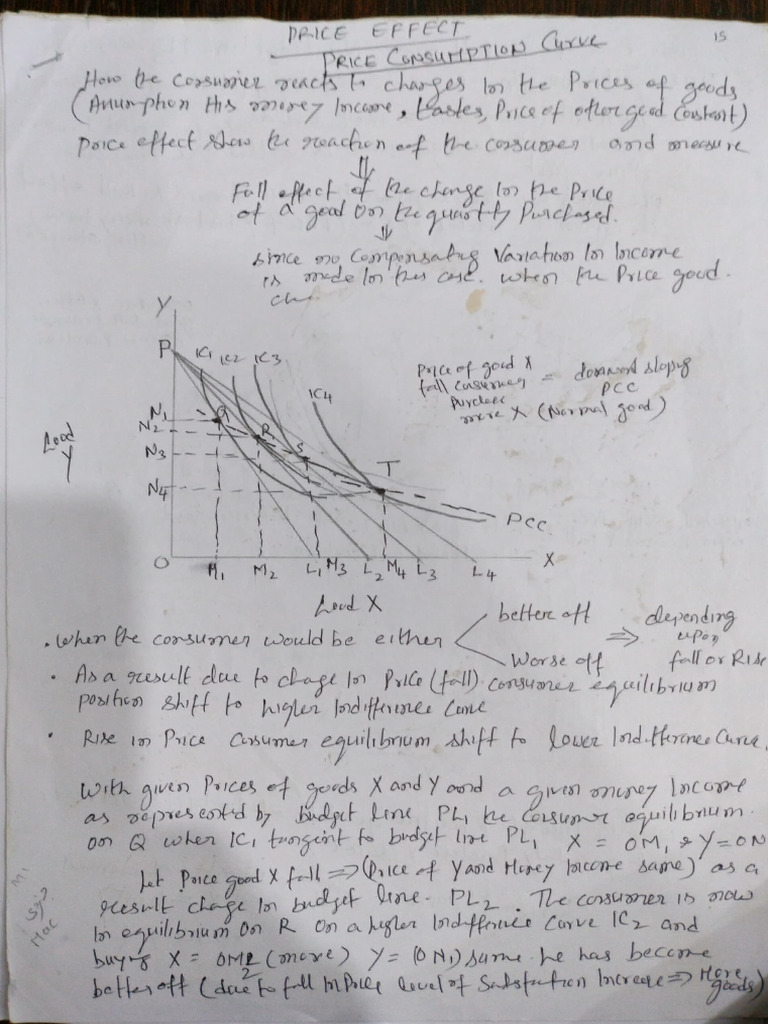 PRICE EFFECT
15
PRICE CONSUMPTION Curve
How the consumer reacts to changes in the Prices of goods
(Assumption His money Income, tastes, Price of other good Constant)
Price effect show the reaction of the consumer and measure
⇓
Full effect of the change in the Price
of a good on the quantity Purchased.
⇓
Since no Compensating Variation in Income
is made in this case. when the Price good.
Y
P
IC1 IC2 IC3
IC4
Price of good X
fall consumer
Purchase
more X (Normal good)
= downward sloping
PCC
N1
N2
N3
N4
Good
Y
Q
R
S
T
PCC
O
M1 M2 L1 M3 L2 M4 L3 L4 X
Good X
. When the consumer would be either
better off
Worse off
⇒ depending
upon
fall or Rise
• As a result due to change in Price (fall) consumer equilibrium
position shift to higher Indifference Curve
• Rise in Price Consumer equilibrium shift to lower Indifference Curve.
With given Prices of goods X and Y and a given money Income
as represented by budget line PL1 the Consumer equilibrium.
on Q when IC1 tangent to budget line PL1 X = OM1 & Y = ON
Let Price good X fall ⇒ (Price of Y and Money Income same) as a
result change in budget line. PL2. The consumer is now
in equilibrium on R on a higher Indifference Curve IC2 and
buying X = OM2 (more) Y = (ON1) same. he has become
better off (due to fall in Price level of Satisfaction Increase ⇒ More
goods)